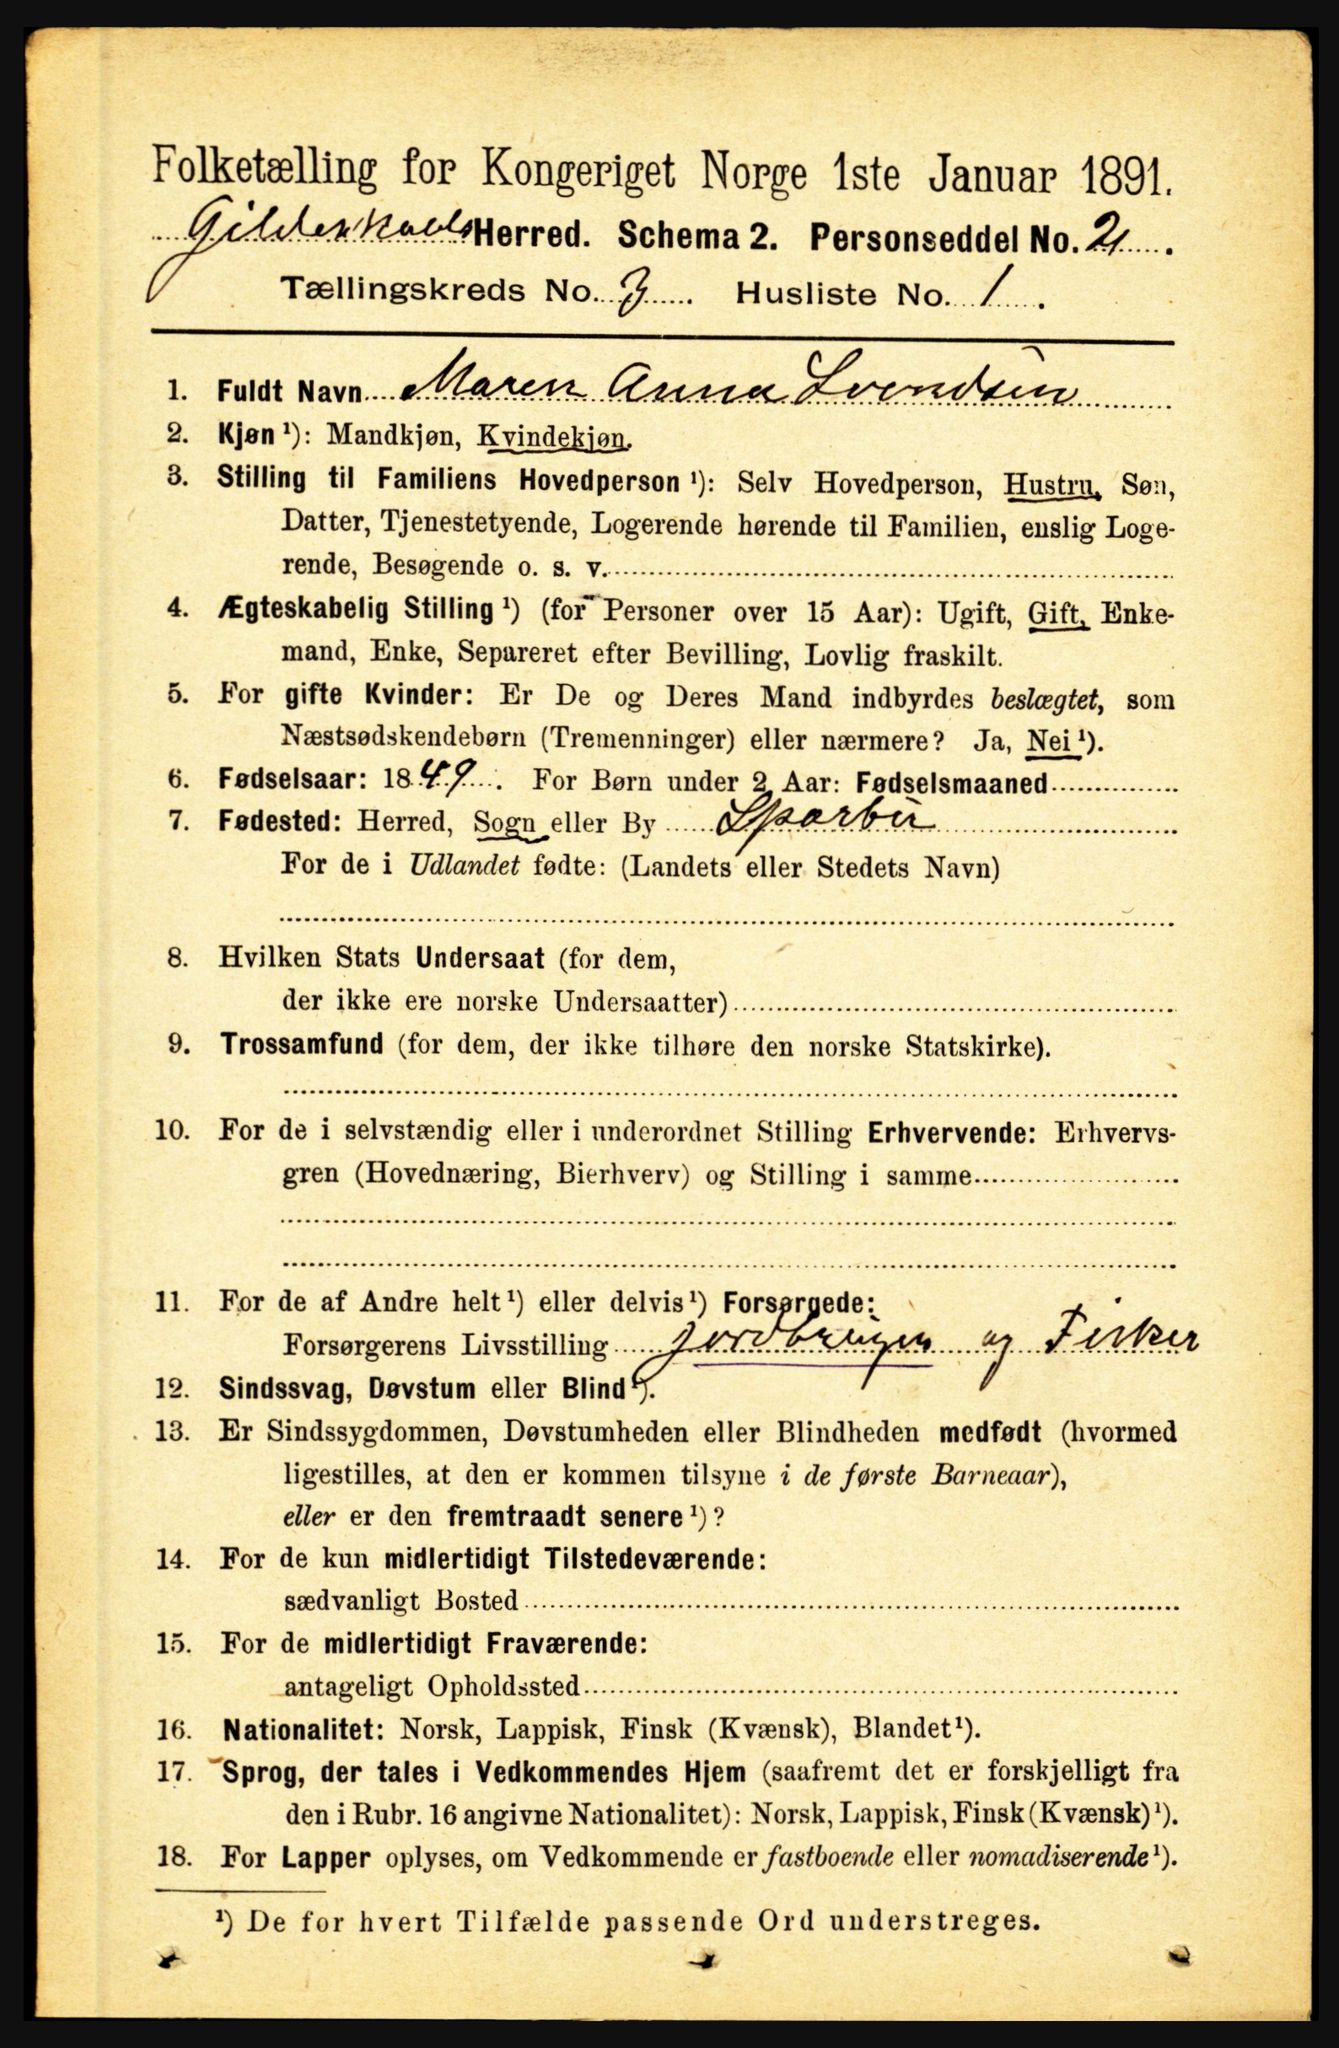 Folketælling for Kongeriget Norge 1ste Januar 1891.
Gildeskaals Herred. Schema 2. Personseddel No. 2
Tællingskreds No. 3. Husliste No. 1.
1. Fuldt Navn Maren Anna Svendsen
2. Kjøn ¹): Mandkjøn, Kvindekjøn.
3. Stilling til Familiens Hovedperson ¹): Selv Hovedperson, Hustru, Søn,
Datter, Tjenestetyende, Logerende hørende til Familien, enslig Loge-
rende, Besøgende o. s. v.
4. Ægteskabelig Stilling ¹) (for Personer over 15 Aar): Ugift, Gift, Enke-
mand, Enke, Separeret efter Bevilling, Lovlig fraskilt.
5. For gifte Kvinder: Er De og Deres Mand indbyrdes beslægtet, som
Næstsødskendebørn (Tremenninger) eller nærmere? Ja, Nei ¹).
6. Fødselsaar: 1849. For Børn under 2 Aar: Fødselsmaaned
7. Fødested: Herred, Sogn eller By Sparbu
For de i Udlandet fødte: (Landets eller Stedets Navn)
8. Hvilken Stats Undersaat (for dem,
der ikke ere norske Undersaatter)
9. Trossamfund (for dem, der ikke tilhøre den norske Statskirke).
10. For de i selvstændig eller i underordnet Stilling Erhvervende: Erhvervs-
gren (Hovednæring, Bierhverv) og Stilling i samme
11. For de af Andre helt ¹) eller delvis ¹) Forsørgede:
Forsørgerens Livsstilling og Fisker
12. Sindssvag, Døvstum eller Blind ¹).
13. Er Sindssygdommen, Døvstumheden eller Blindheden medfødt (hvormed
ligestilles, at den er kommen tilsyne i de første Barneaar),
eller er den fremtraadt senere ¹)?
14. For de kun midlertidigt Tilstedeværende:
sædvanligt Bosted
15. For de midlertidigt Fraværende:
antageligt Opholdssted
16. Nationalitet: Norsk, Lappisk, Finsk (Kvænsk), Blandet ¹).
17. Sprog, der tales i Vedkommendes Hjem (saafremt det er forskjelligt fra
den i Rubr. 16 angivne Nationalitet): Norsk, Lappisk, Finsk (Kvænsk) ¹).
18. For Lapper oplyses, om Vedkommende er fastboende eller nomadiserende ¹).
¹) De for hvert Tilfælde passende Ord understreges.